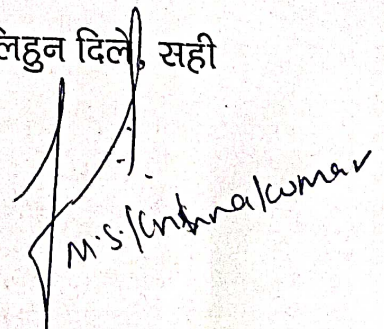 लिहुन दिले, सही
M.S. Krishnakumar